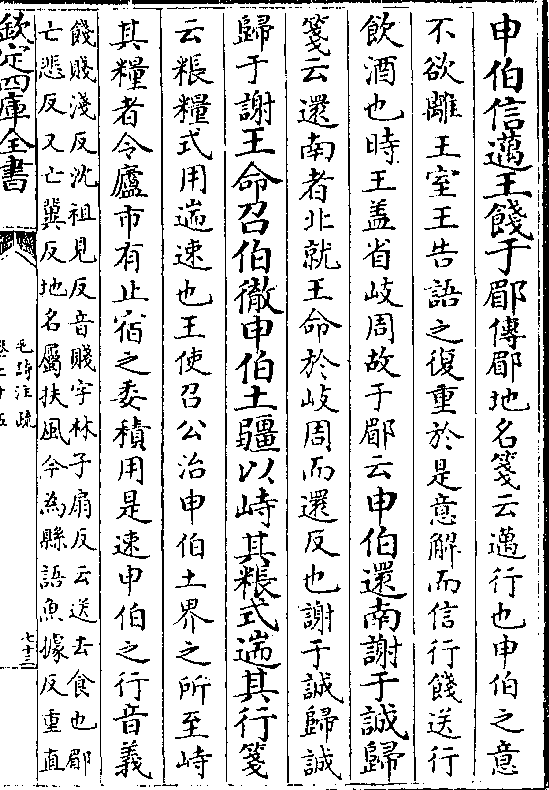 申伯信邁王餞于郿傳郿地名箋云邁行也申伯之意
不欲離王室王告語之復重於是意解而信行餞送行
飲酒也時王盖省岐周故于郿云申伯還南謝于誠歸
箋云還南者北就王命於岐周而還反也謝于誠歸誠
歸于謝王命召伯徹申伯土疆以峙其粻式遄其行箋
云粻糧式用遄速也王使召公治申伯土界之所至峙
其糧者令廬市有止宿之委積用是速申伯之行音義
餞賤淺反沈祖見反音賤字林子扇反云送去食也郿
亡悲反又亡冀反地名屬扶風今為縣語魚據反重直
欽定四庫全書
毛詩注疏
卷二十五
七十三